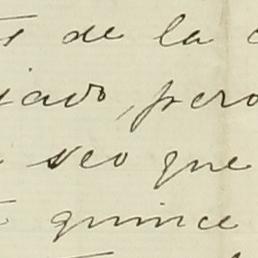 de la
jado, pero
veo que
quince